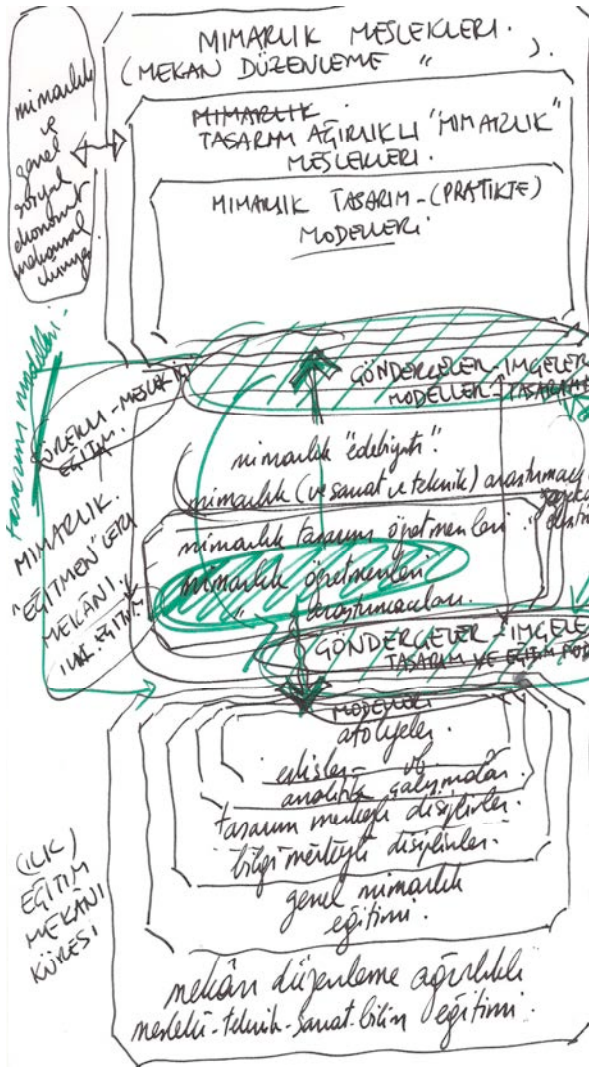 MIMARLIK MESLEKLERI.
(MEKAN DÜZENLEME " ).
mimarlık
ve
genel
sosyal
ekonomik
mekansal
MIMARLIK
TASARIM AĞIRLIKLI "MIMARLIK"
MESLEKLERI.
MIMARLIK TASARIM-(PRATIKTE)
MODELLERI
tasarım modelleri-
GÖNDERGELER-IMGELER
MODELLER-TASARIME
SÜREKLI-MESLEK
EĞITIM.
mimarlık "edebiyatı".
mimarlık (ve sanat ve teknik)
MIMARLIK.
"EĞITMEN"LERI
MEKÂNI
EĞITIM
mimarlık tasarım öğretmenleri
mimarlık öğretmenleri
" araştırmacıları.
GÖNDERGELER-IMGELE
TASARIM VE EĞITIM MOD
MODELLERI
atölyeler.
vb.
analitik çalışmalar.
tasarım merkezli disiplinler.
bilgi merkezli disiplinler.
genel mimarlık
eğitimi.
(ILK)
EĞITIM
MEKÂNI
KÜRESI
mekân düzenleme ağırlıklı
mesleki-teknik-sanat-bilim eğitimi.